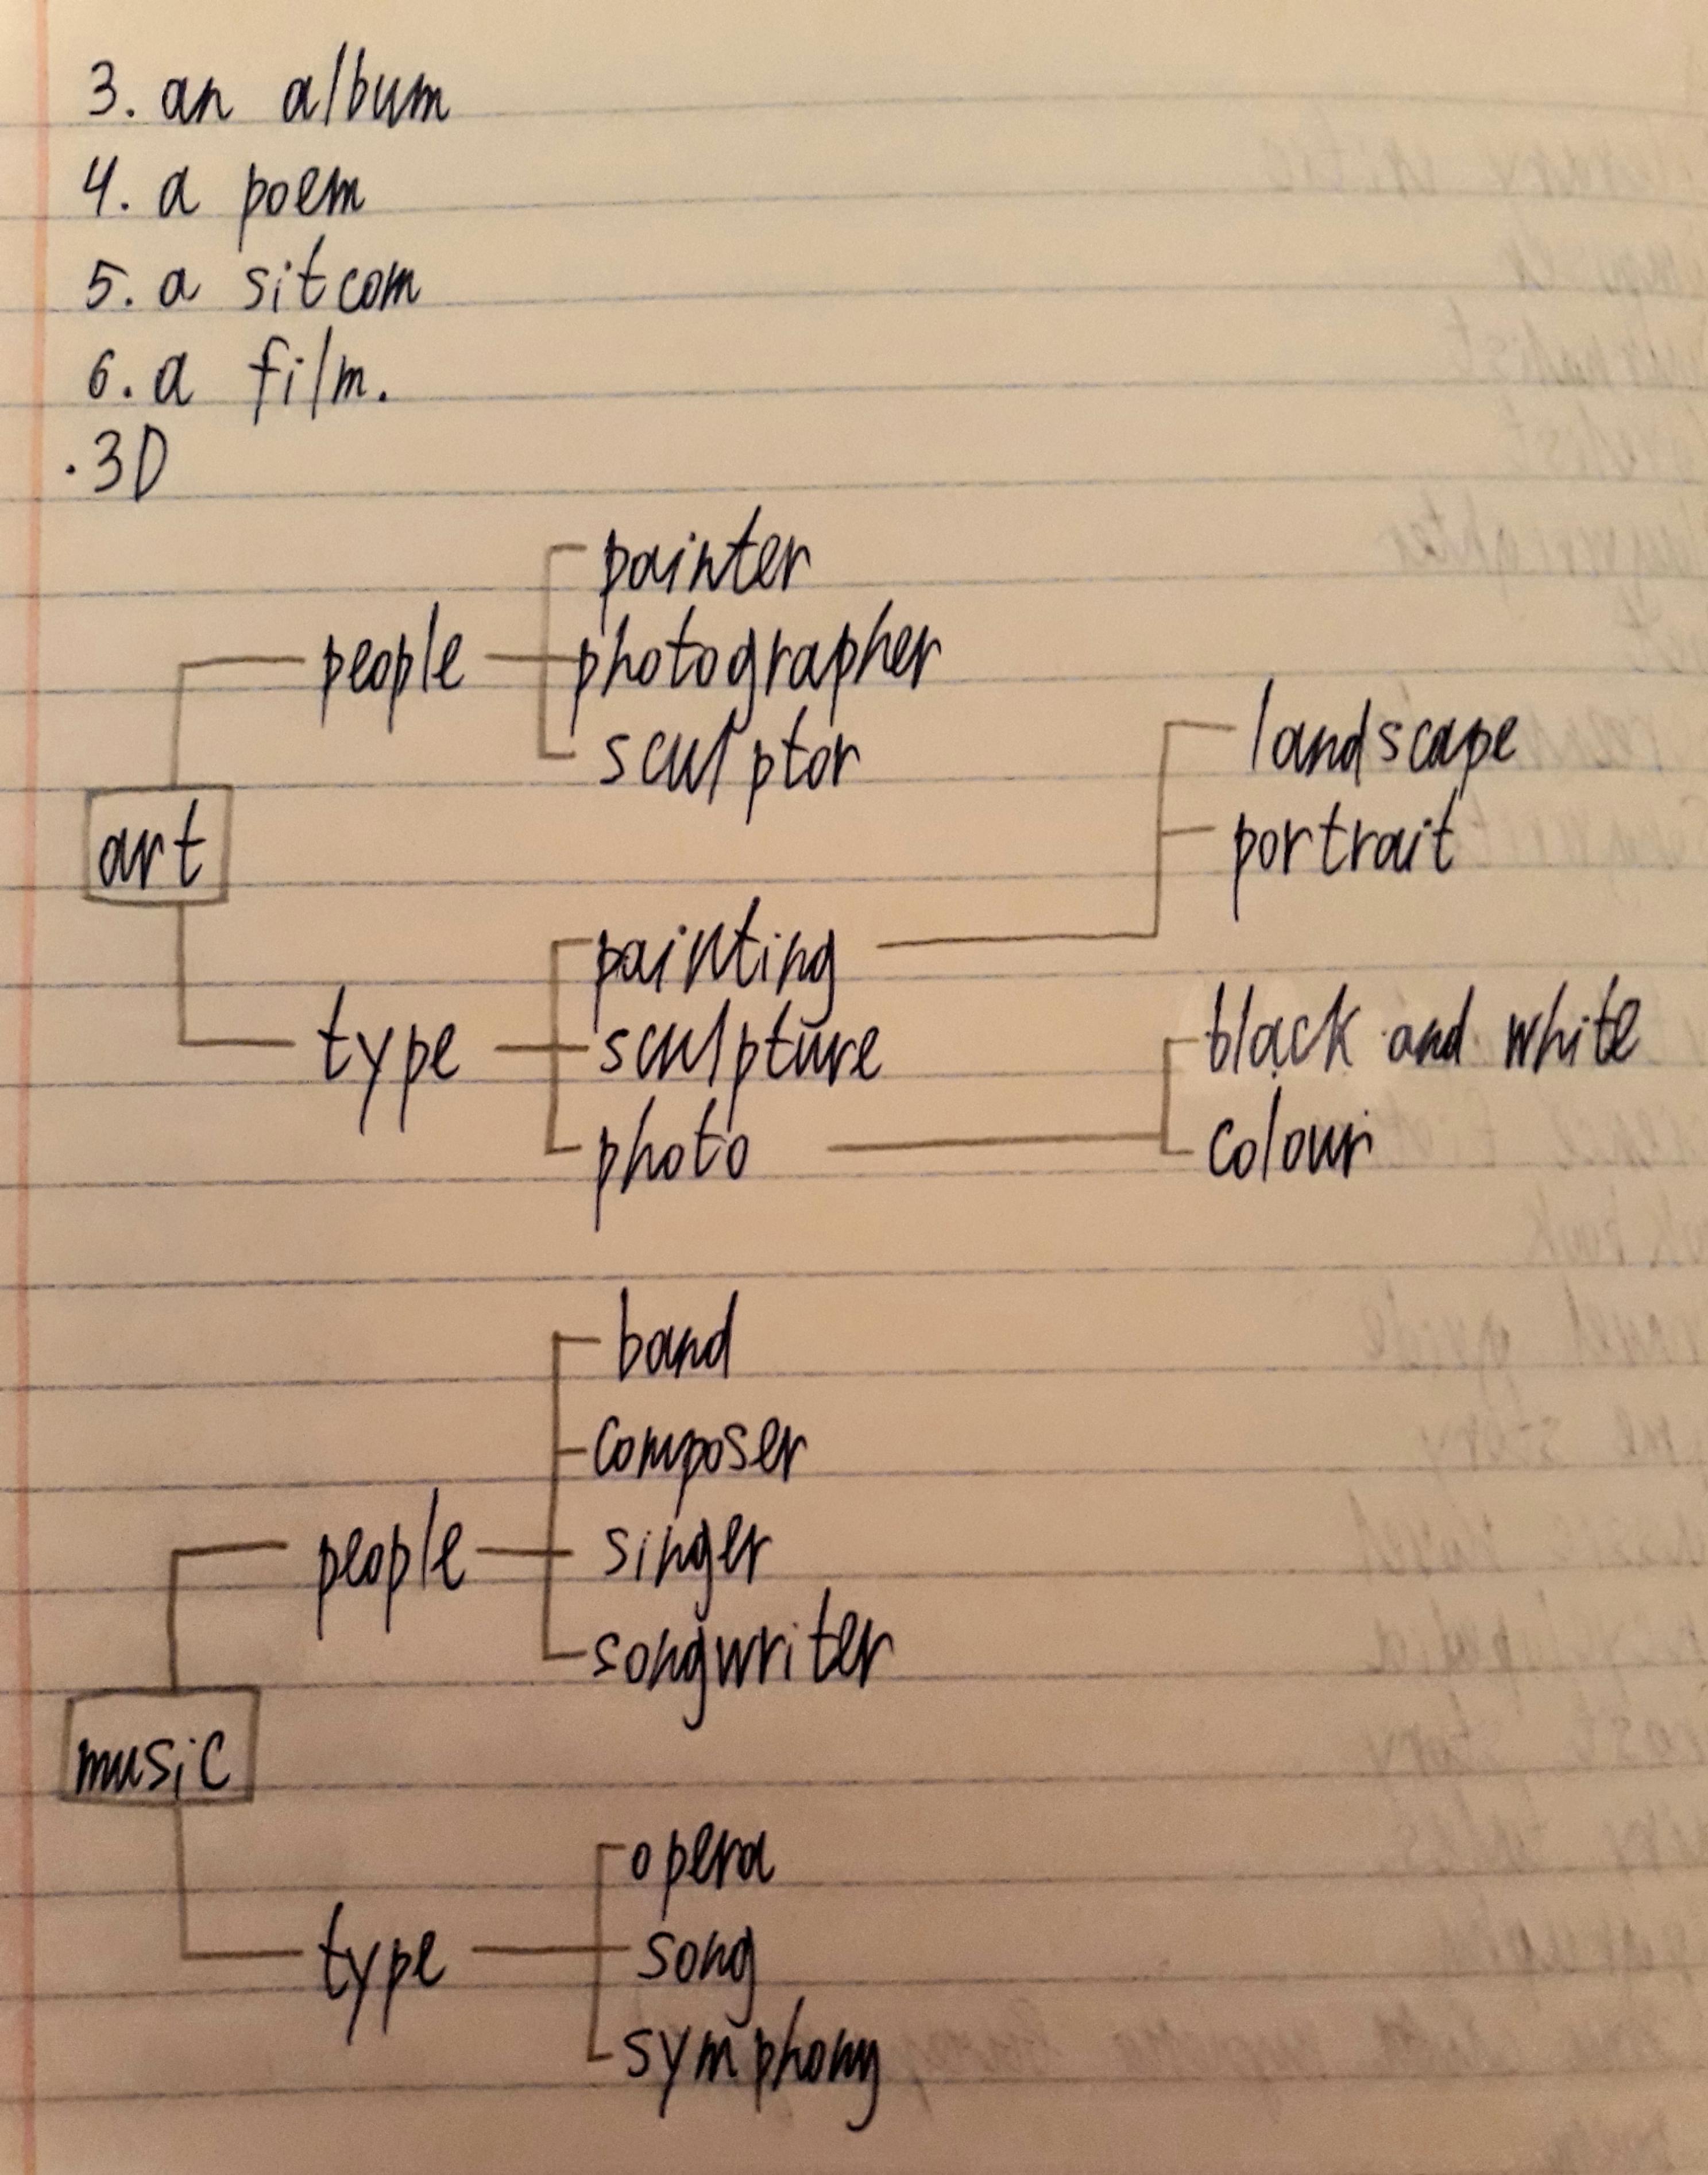 3. an album
4. a poem
5. a sitcom
6. a film.
· 3D
painter
people photographer
sculptor
landscape
art
portrait
painting
type sculpture
black and white
photo
colour
band
composer
people singer
songwriter
music
opera
type song
symphony